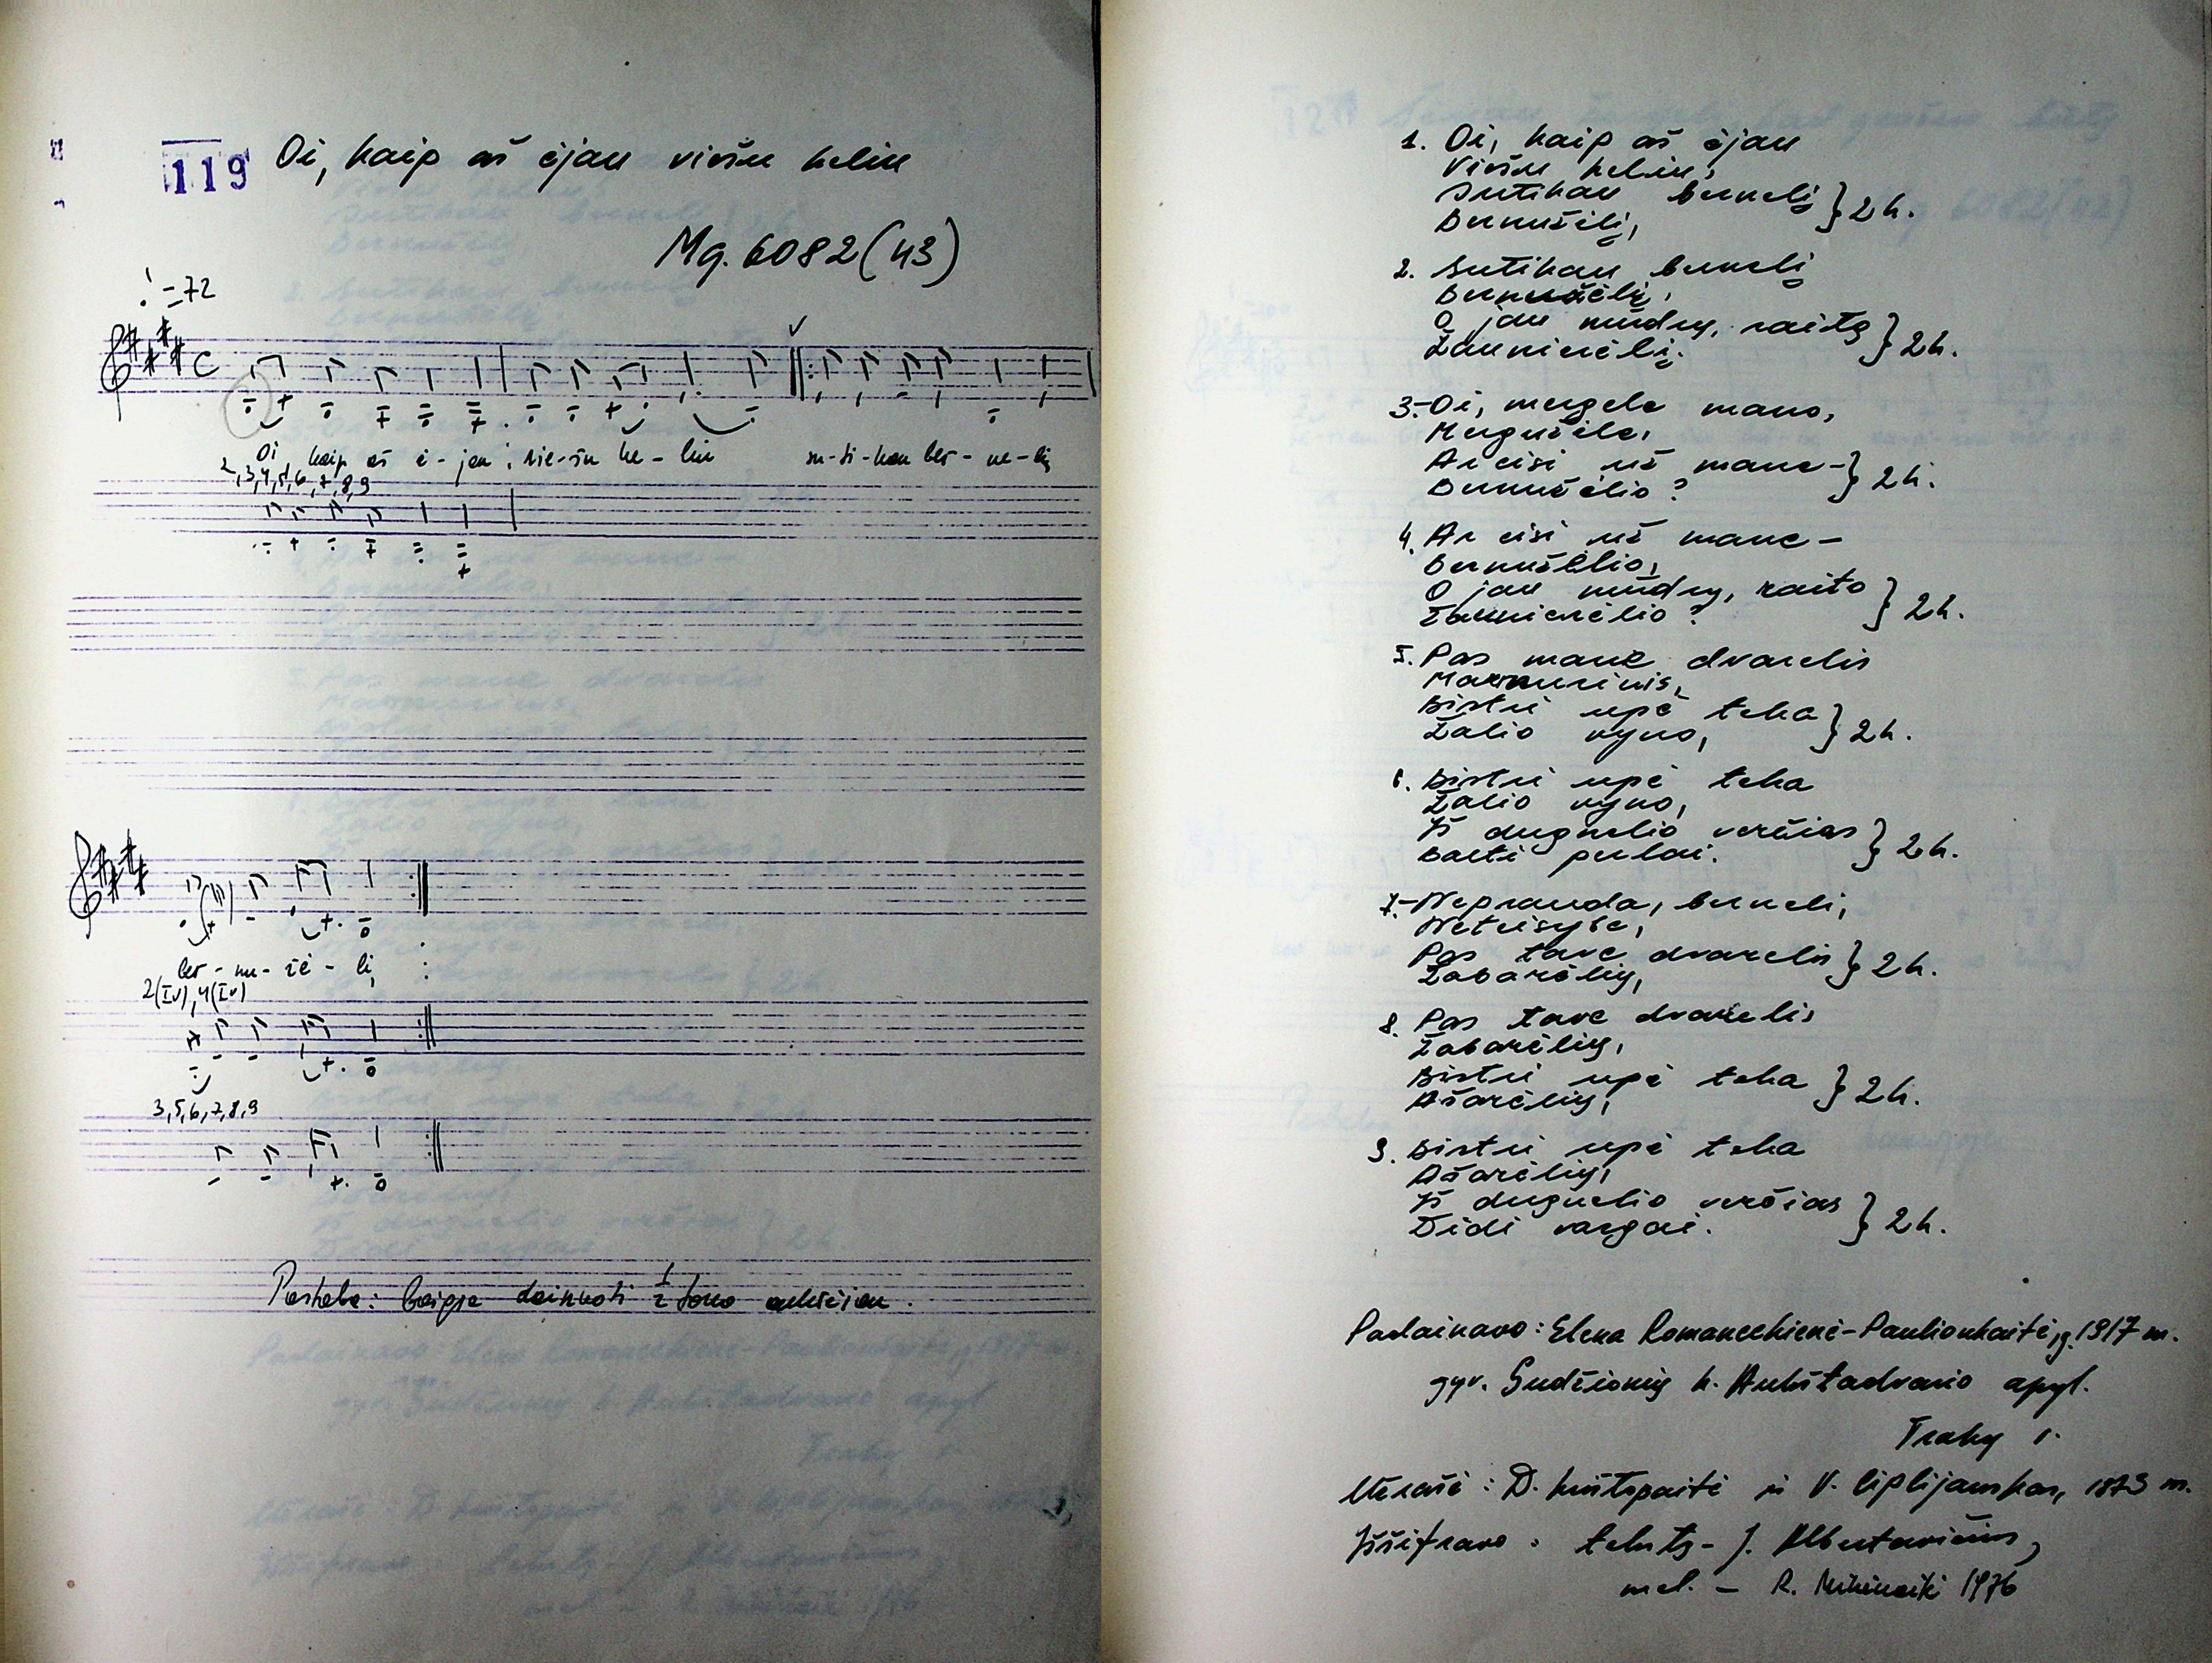 119 Oi, kaip aš ėjau viešu keliu
Mg. 6082(43)
=72
Oi kaip aš ė-jau vie-šu ke-liu su-ti-kau ber-ne-lį
2,3,4,5,6,7,8,9
ber-nu-žė-lį,
2(IV),4(IV)
3,5,6,7,8,9
Pastaba: baigia dainuoti 1/2 tono aukščiau.
1. Oi, kaip aš ėjau
Viešu keliu,
Sutikau bernelį } 2 k.
Bernužėlį,
2. Sutikau bernelį
Bernužėlį,
O jau mūdrų, raitą } 2 k.
Žaunierėlį.
3.-Oi, mergele mano,
Mergužėle,
Ar eisi už manę- } 2 k.
Bernužėlio?
4. Ar eisi už manę-
Bernužėlio,
O jau mūdrų, raito } 2 k.
Žaunierėlio?
5. Pas manę dvarelis
Marmurinis,
Bistri upė teka } 2 k.
Žalio vyno,
6. Bistri upė teka
Žalio vyno,
Iš dugnelio verčias } 2 k.
Balti pulai.
7.-Nepravda, berneli,
Neteisybė,
Pas tavę dvarelis } 2 k.
Žabarėlių,
8. Pas tavę dvarelis
Žabarėlių,
Bistri upė teka } 2 k.
Ašarėlių,
9. Bistri upė teka
Ašarėlių,
Iš dugnelio verčias } 2 k.
Didi vargai.
Padainavo: Elena Romanečkienė-Paulionkaitė, g. 1917 m.
gyv. Sudžionių k. Aukštadvario apyl.
Trakų r.
Užrašė: D. Krištopaitė ir V. Ciplijauskas, 1973 m.
Iššifravo: tekstą- J. Albertavičius,
mel. - R. 1976